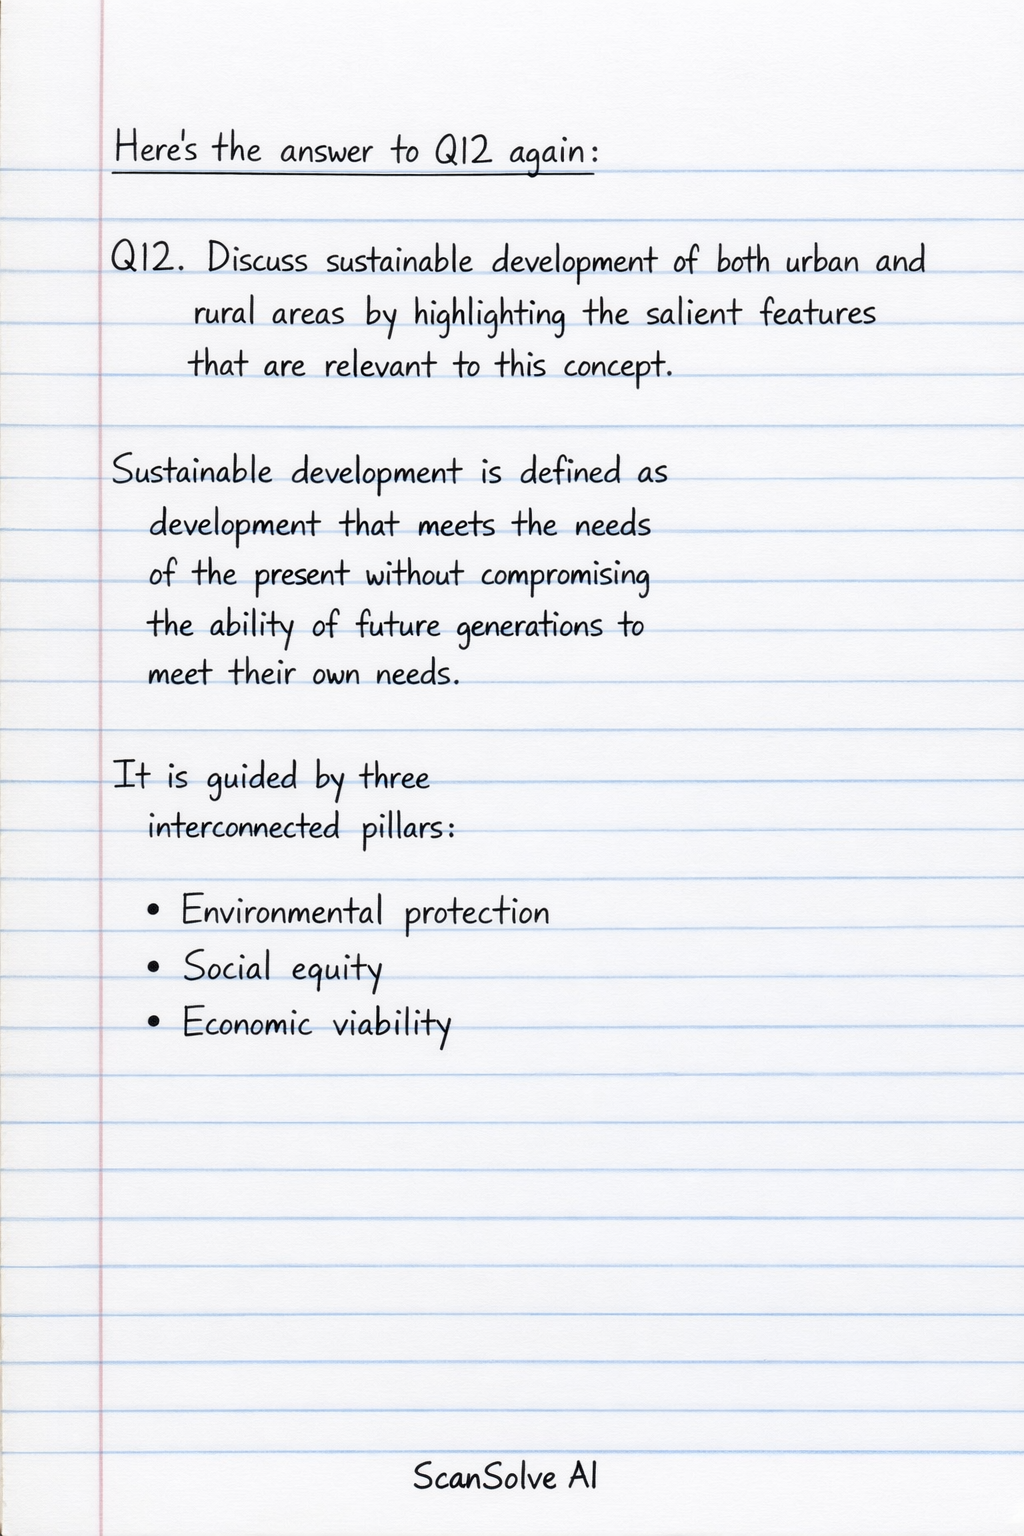 Here's the answer to Q12 again:
Q12. Discuss sustainable development of both urban and
rural areas by highlighting the salient features
that are relevant to this concept.
Sustainable development is defined as
development that meets the needs
of the present without compromising
the ability of future generations to
meet their own needs.
It is guided by three
interconnected pillars:
• Environmental protection
• Social equity
• Economic viability
ScanSolve AI